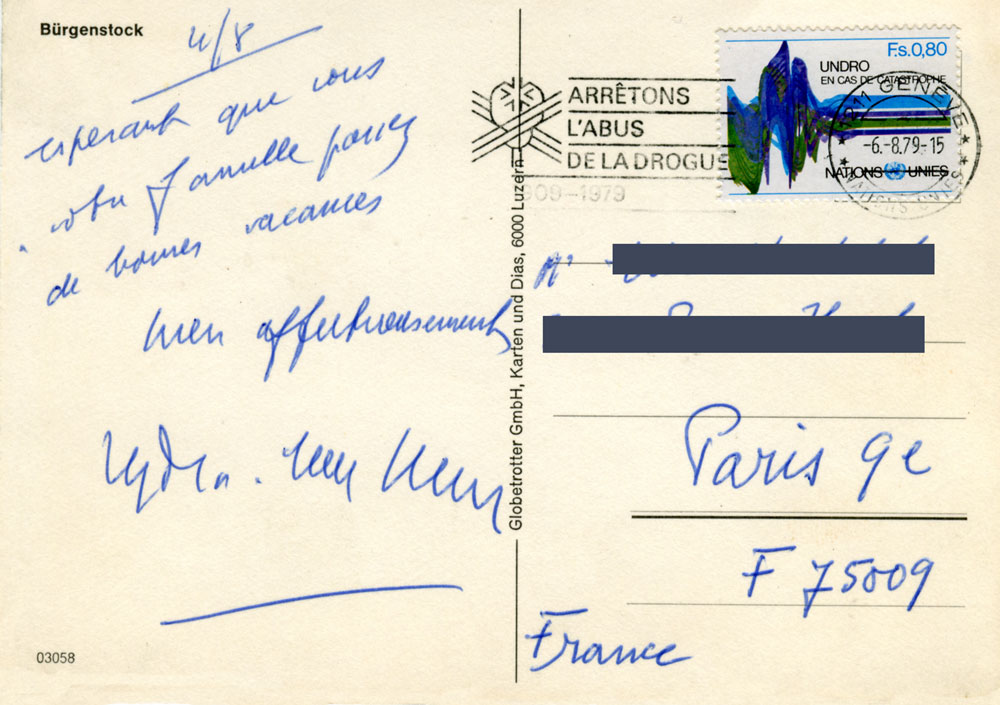 Bürgenstock
4/8
esperant que vous
votre famille passez
de bonnes vacances
bien affectueusement
Lydia
03058
Globetrotter GmbH, Karten und Dias, 6000 Luzern
ARRÊTONS
L'ABUS
DE LA DROGUE
1909–1979
F.s.0,80
UNDRO
EN CAS DE CATASTROPHE
NATIONS UNIES
1211 GENÈVE
-6.-8.79-15
NATIONS UNIES
Paris 9e
F 75009
France